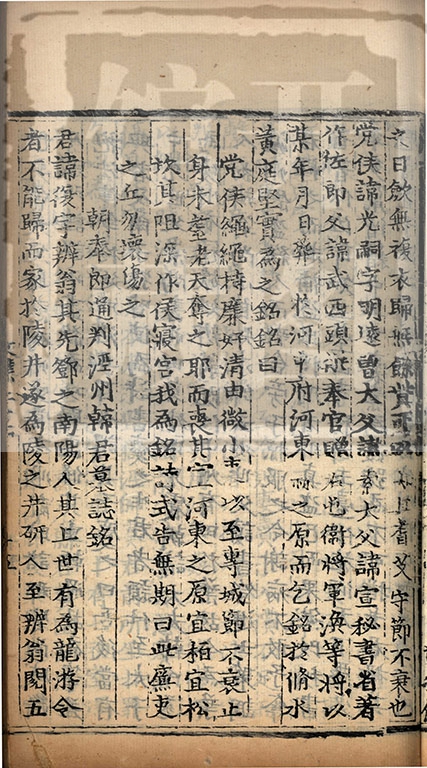 之日斂無複衣歸無餘貲可 者父守節不衰也
党侯諱光嗣字明遠曾大父諱 素大父諱宣秘書省著
作佐郎父諱武西頭 奉官贈 衛將軍渙等將以
某年月日葬於河中府河東 之原而乞銘於脩水
黃庭堅實為之銘銘曰
党侯繩繩持廉好清由微小吏以至專城節不衰止
身未耋老天奪之耶而喪其 河東之原宜柏宜松
坎其阻深作侯寢宮我為銘詩式告無期曰此廉吏
之丘勿壞傷之
朝奉郎通判涇州韓君墓誌銘
君諱復字辨翁其先鄧之南陽人其上世有為龍游令
者不能歸而家於陵井遂為陵之井研人至辨翁閱五